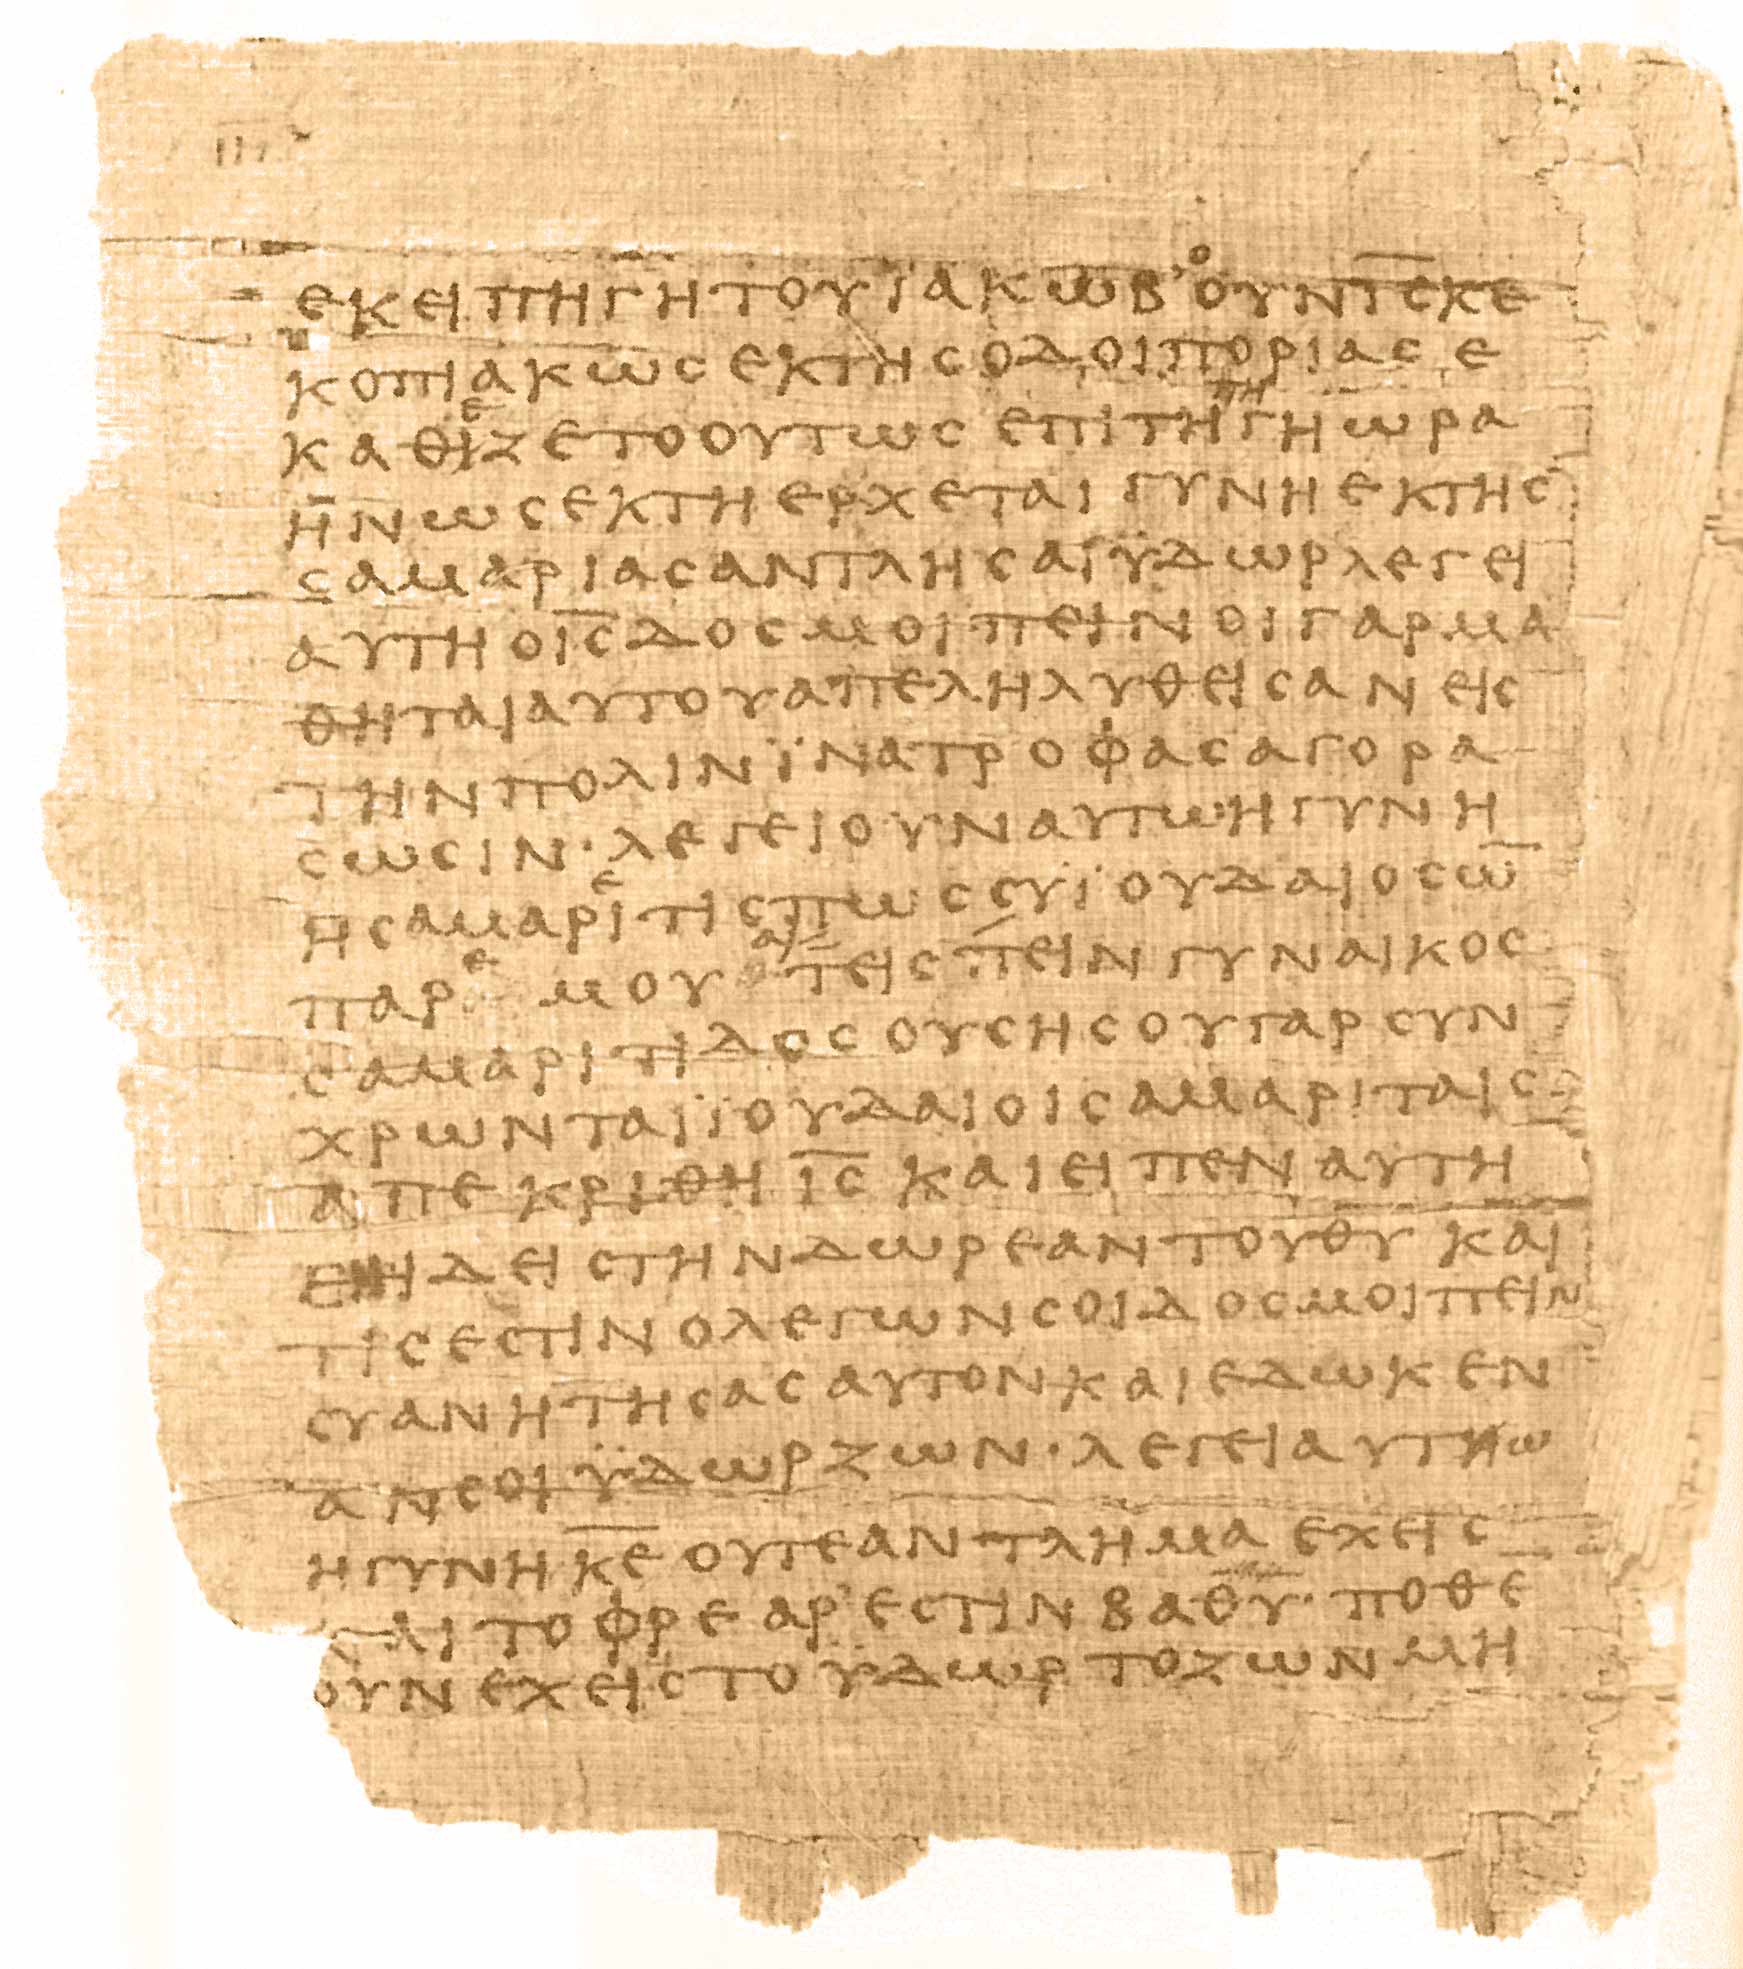 εκειπηγητουϊακωβ’ ὁουνι̅ς̅κε
κοπιακωςεκτηςοδοιποριαςε
καθεζετοουτωςεπιτηπηγηωρα
ηνωςεκτηερχεταιγυνηεκτης
ςαμαριαςαντληςαιϋδωρλεγει
αυτηοι̅ς̅δοςμοιπεινοιγαρμα
θηταιαυτουαπεληλυθειςανεις
τηνπολινϊνατροφαςαγορα
ςωςιν·λεγειουναυτωηγυνη
ηςαμαρειτιςπωςςυϊουδαιοςω̅
παρεμουαιτειςπεινγυναικος
ςαμαριτιδοςουςηςουγαρςυν
χρωνταιϊουδαιοιςαμαριταις
απεκριθηι̅ς̅καιειπεναυτη
ειηδειςτηνδωρεαντουθυκαι
τιςεςτινολεγωνςοιδοςμοιπειν
ςυανητηςαςαυτονκαιεδωκεν
ανςοιϋδωρζων·λεγειαυτω
ηγυνηκ̅ε̅ουτεαντλημαεχεις
καιτοφρεαρ’εςτινβαθυ·ποθε̅
ουνεχειςτοϋδωρτοζωνμη